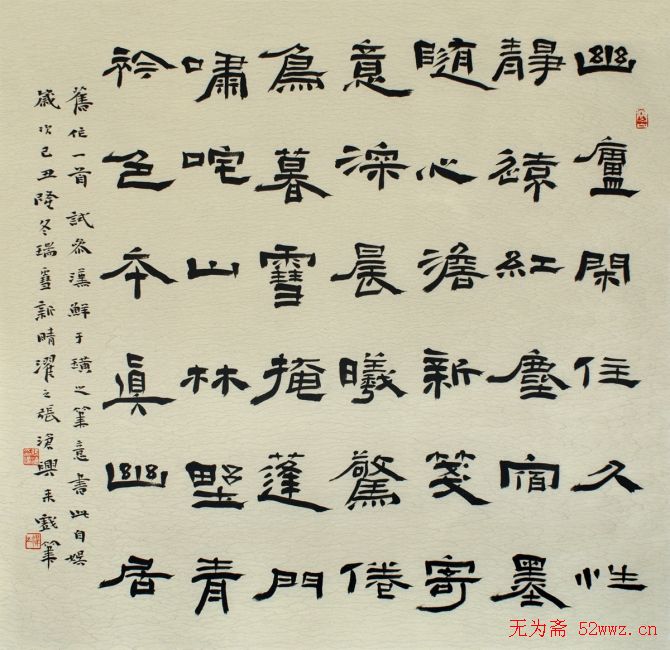 幽廬閑住久性
静遠紅塵宿墨
隨心澹新箋寄
意深晨曦驚倦
鳥暮雪掩蓬門
嘯咤山林野青
衿色本真幽居
舊作一首試參漢鮮于璜之筆意書此自娱
歲次己丑隆冬瑞雪新晴濯之張興來戲筆
无为斋 52wwz.cn